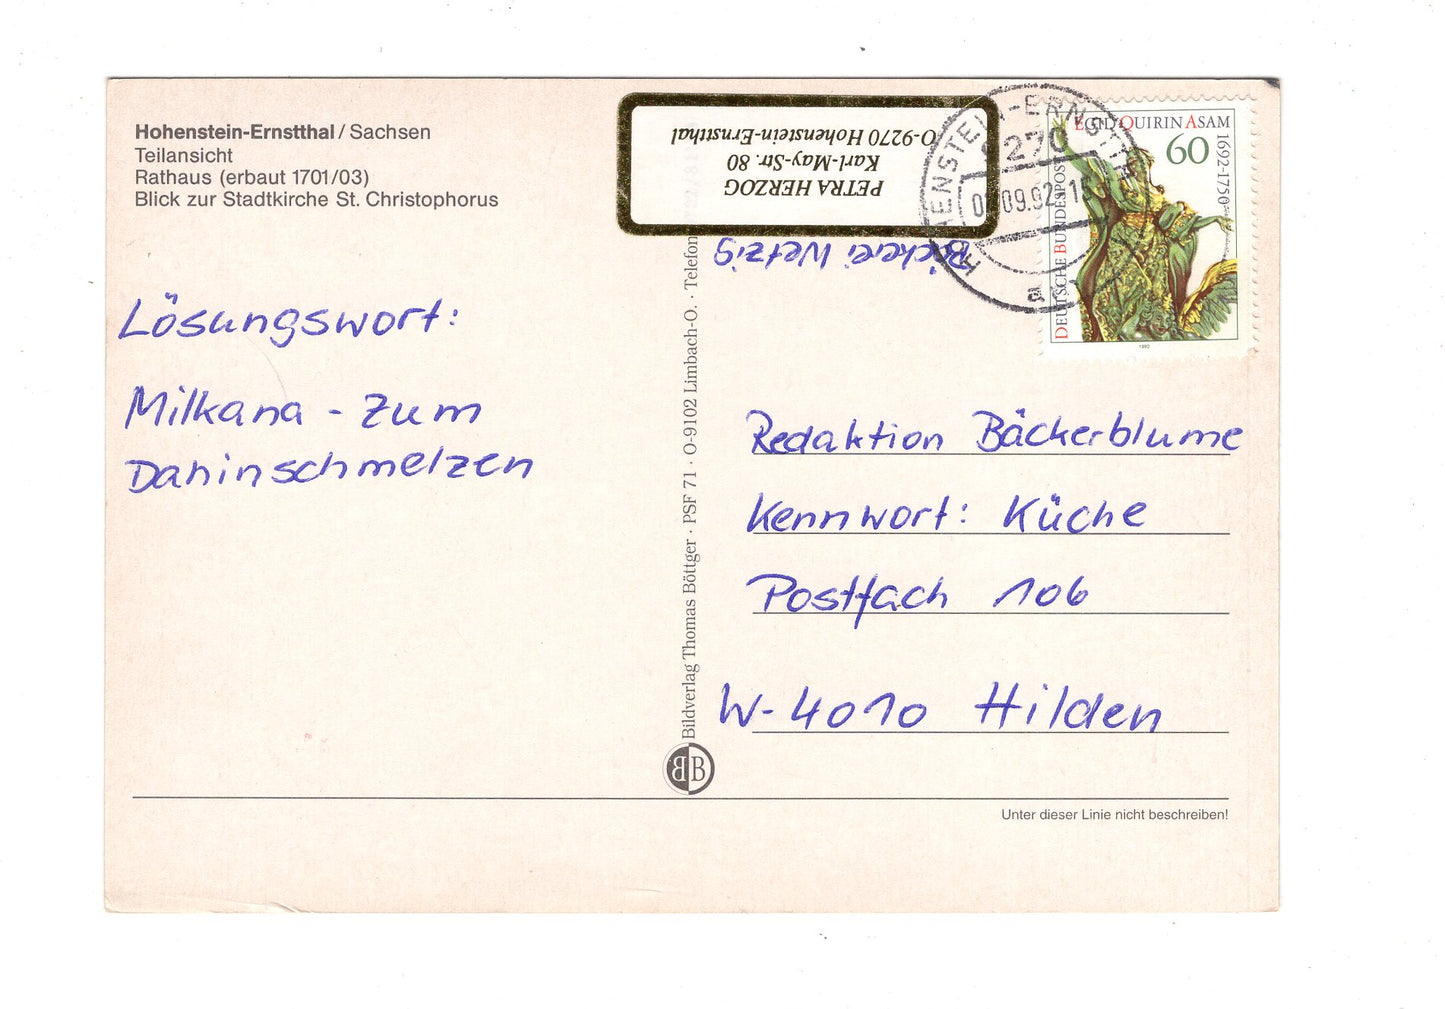 Hohenstein-Ernstthal / Sachsen
Teilansicht
Rathaus (erbaut 1701/03)
Blick zur Stadtkirche St. Christophorus
Lösungswort:
Milkana - zum
Dahinschmelzen
PETRA HERZOG
Karl-May-Str. 80
O-9270 Hohenstein-Ernstthal
Bäckerei Wetzig
EGID QUIRIN ASAM
1692-1750
60
DEUTSCHE BUNDESPOST
1992
HOHENSTEIN-ERNSTTHAL
9270
09.92-15
a
Redaktion Bäckerblume
Kennwort: Küche
Postfach 106
W-4010 Hilden
Bildverlag Thomas Böttger · PSF 71 · O-9102 Limbach-O. · Telefon
BB
Unter dieser Linie nicht beschreiben!